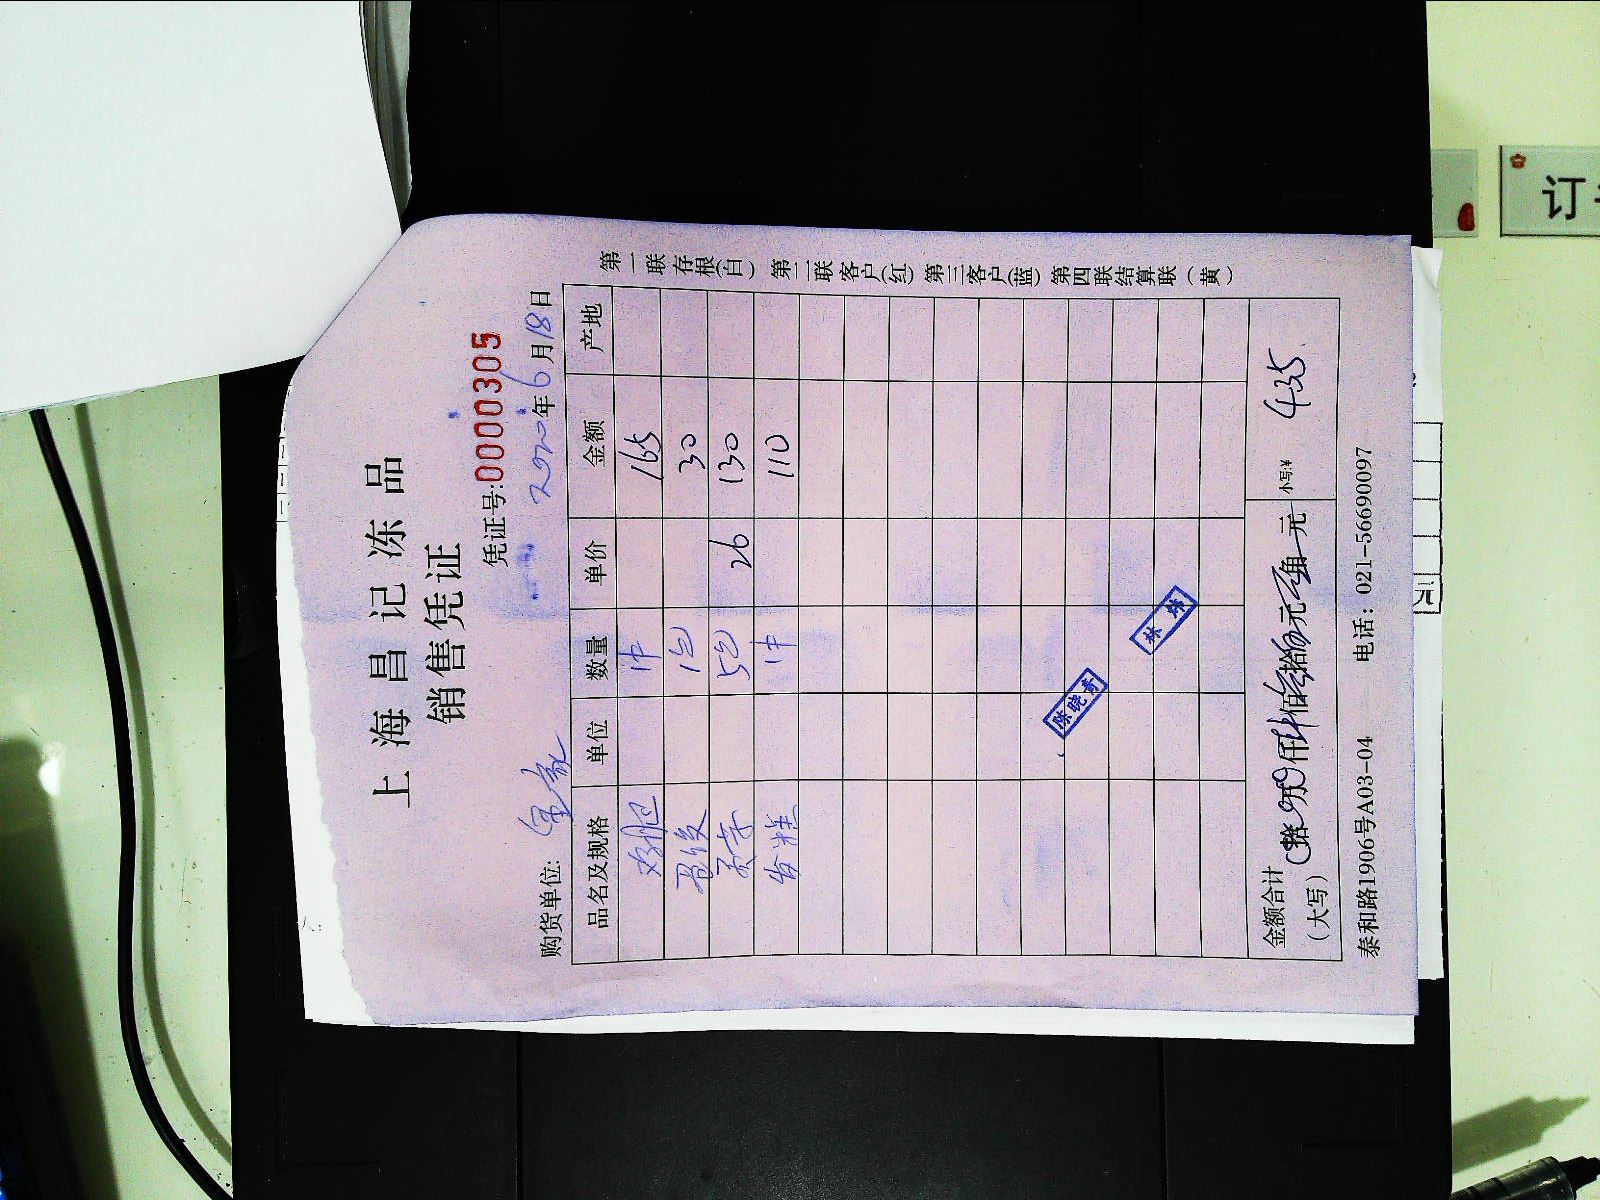 上海昌记冻品
销售凭证
凭证号:0000305
购货单位:
2020年6月18日
品名及规格 单位 数量 单价 金额 产地
1件 165
1包 30
5包 26 130
发糕 1件 110
陈晓奇
林炜
金额合计(大写) 拾 万 仟 佰 拾 元 角 元 小写:¥ 435
泰和路1906号A03-04 电话: 021-56690097
第一联存根(白) 第二联客户(红) 第三客户(蓝) 第四联结算联(黄)
订
元